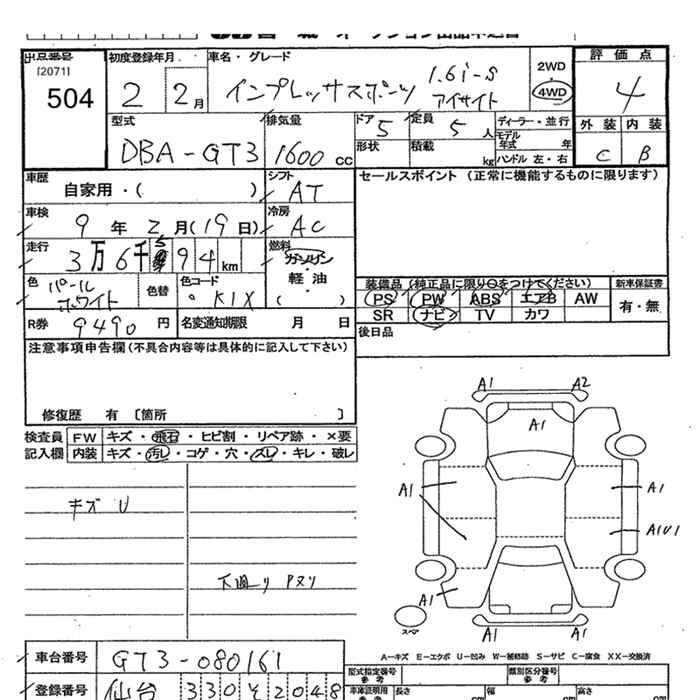 出品番号
[2071]
504
初度登録年月
2 2月
車名・グレード
インプレッサスポーツ 1.6i-S アイサイト
2WD
4WD
評価点
4
型式
DBA-GT3
排気量
1600 cc
ドア 5
定員 5 人
形状
積載 kg
ディーラー・並行
モデル
年式 年
ハンドル 左・右
外装 内装
C B
車歴
自家用・( )
シフト
AT
セールスポイント (正常に機能するものに限ります)
車検
9 年 2 月(19日)
冷房
AC
走行
3万6千 5 94 km
燃料
ガソリン
・
軽油
( )
色
パールホワイト
色替
色コード
・KIX
装備品(純正品に限り○をつけてください)
新車保証書
PS PW ABS エアB AW
有・無
SR ナビ TV カワ
R券 9490 円
名変通知期限 月 日
後日品
注意事項申告欄(不具合内容等は具体的に記入して下さい)
修復歴 有 〔箇所 〕
検査員 FW キズ・飛石・ヒビ割・リペア跡・×要
記入欄 内装 キズ・汚レ・コゲ・穴・スレ・キレ・破レ
キズ U
下廻り Pヌリ
A1 A2
A1
A1 A1
A1U1
A1 A1
スペア
A―キズ E―エクボ U―凹み W―補修跡 S―サビ C―腐食 XX―交換済
車台番号 GT3-080161
型式指定番号
参考
類別区分番号
参考
登録番号 仙台 330 そ 2048
車庫証明用
参考
長さ cm
幅 cm
高さ cm